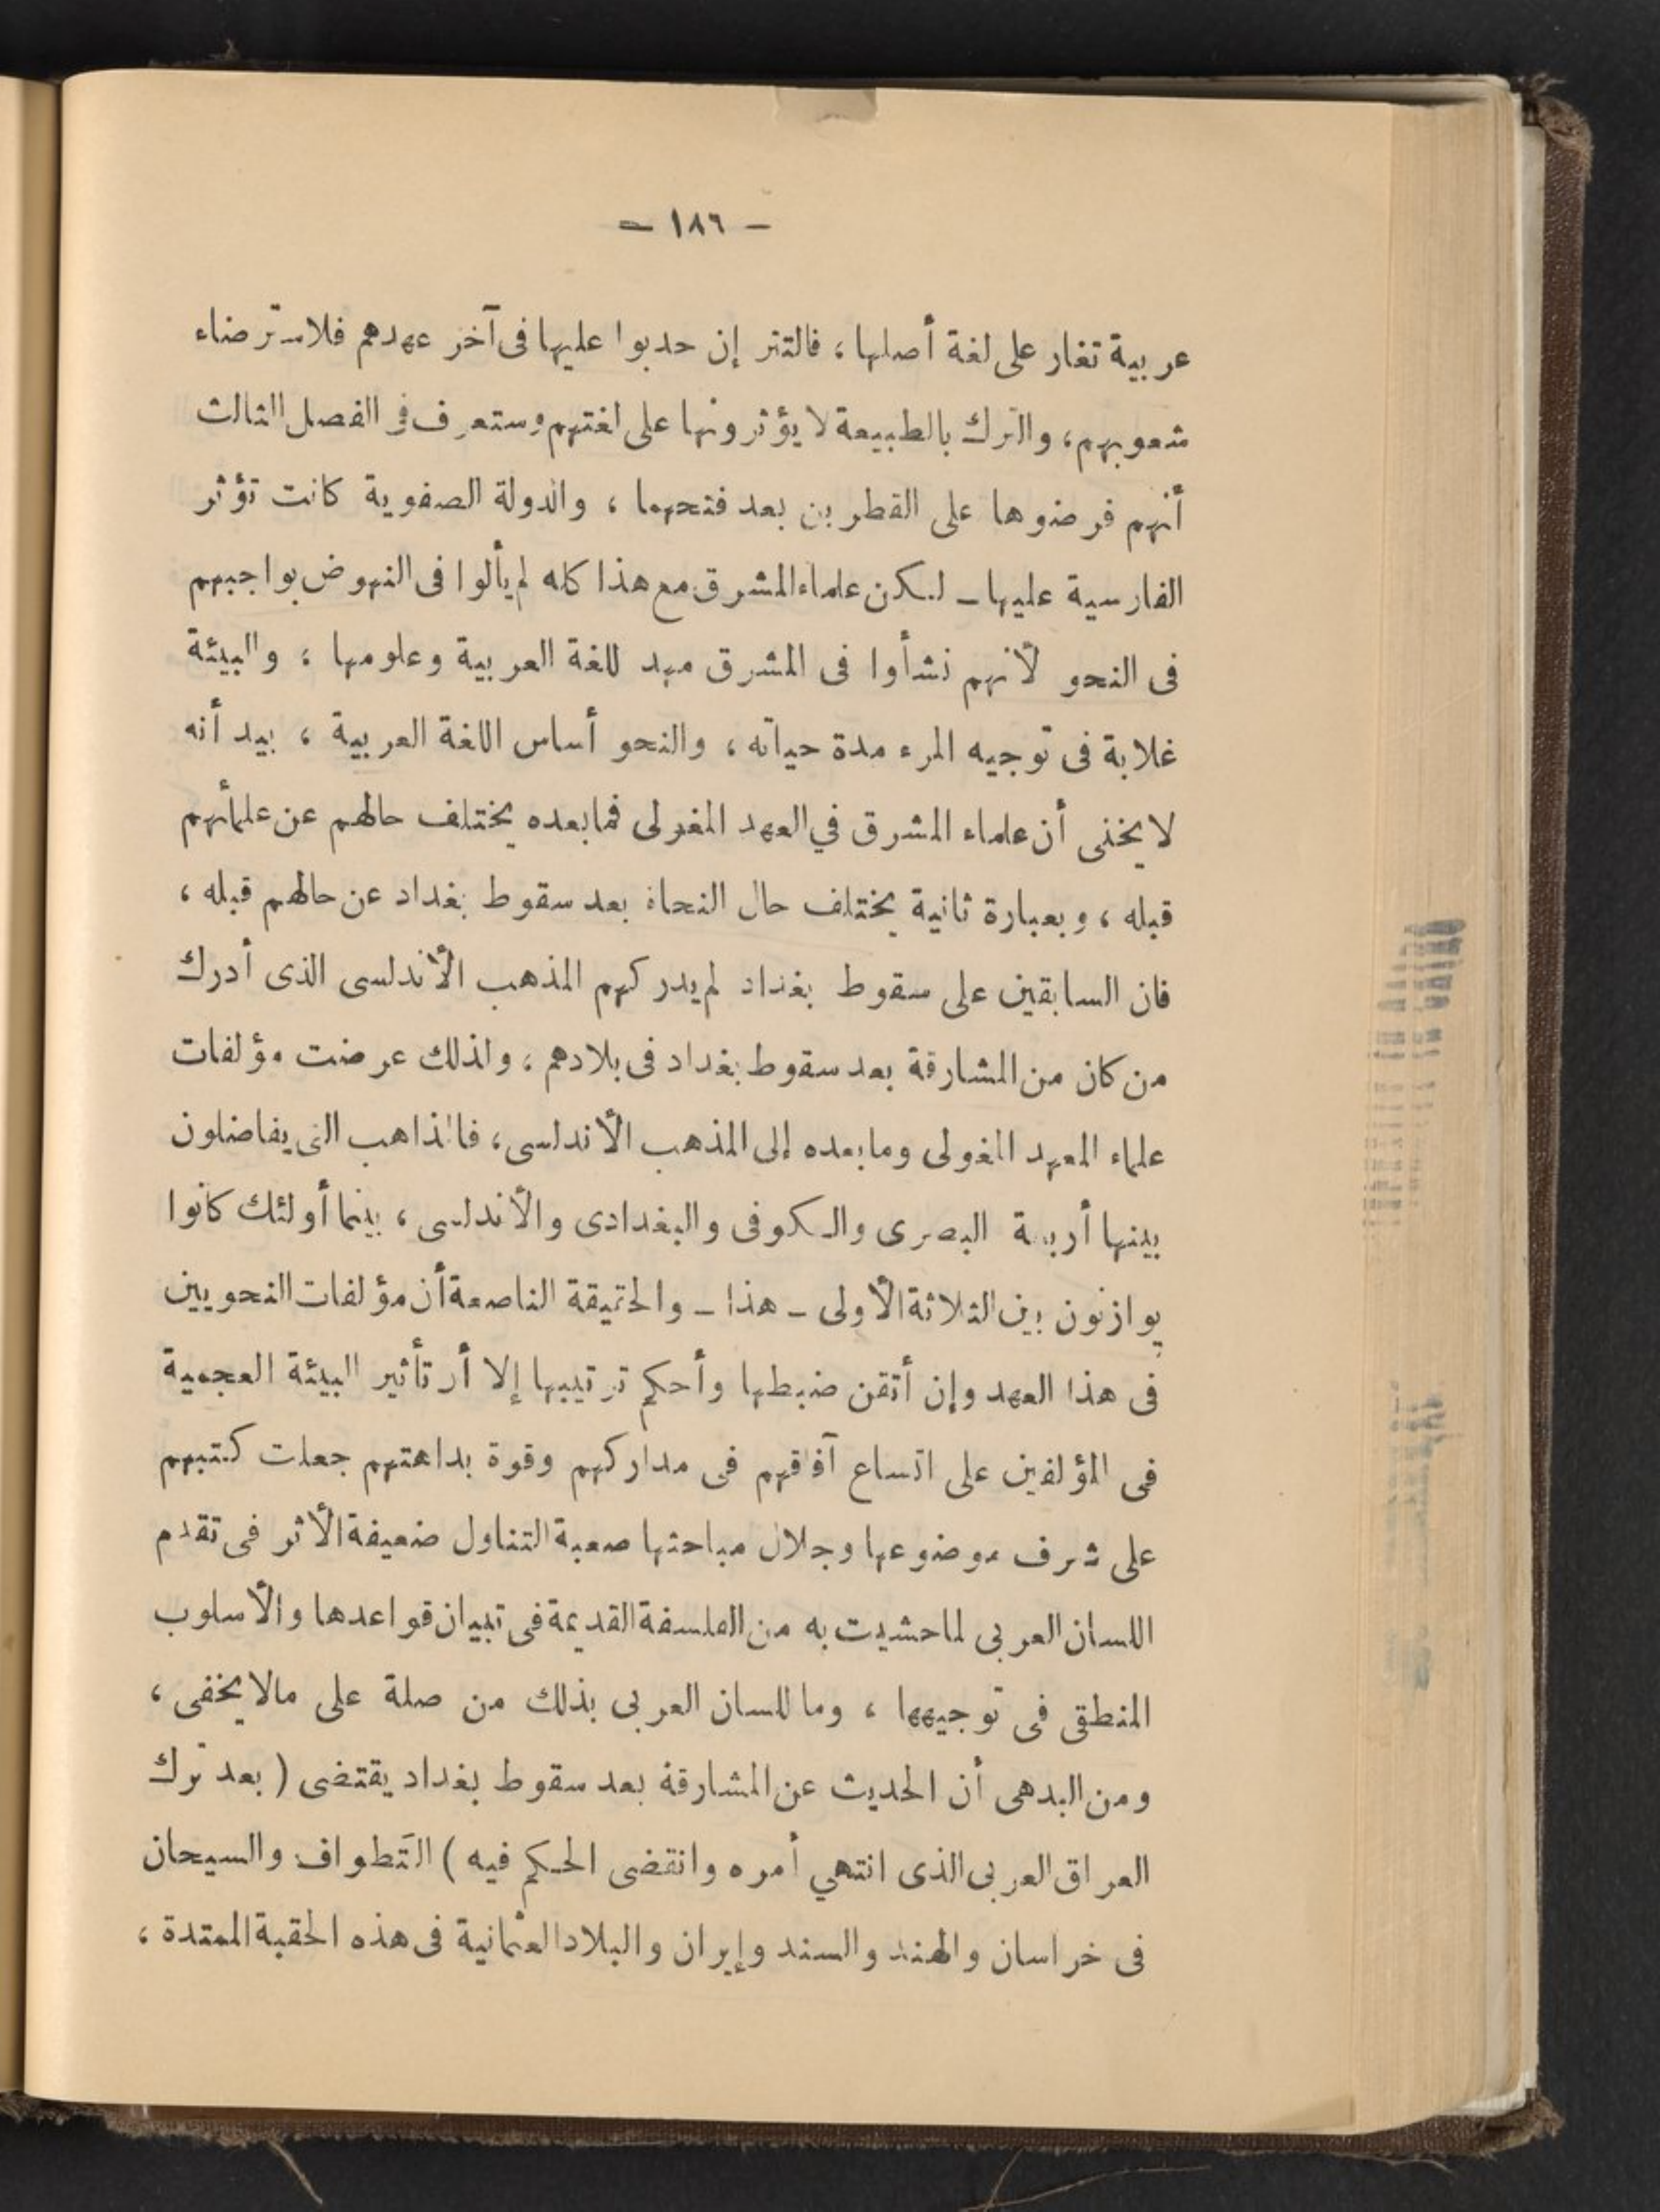 — ١٨٦ —
عربية تغار على لغة أصلها ، فالتتر إن حدبوا عليها فى آخر عهدهم فلاسترضاء
شعوبهم ، والترك بالطبيعة لا يؤثرونها على لغتهم وستعرف في الفصل الثالث
أنهم فرضوها على القطرين بعد فتحهما ، والدولة الصفوية كانت تؤثر
الفارسية عليها ـ لكن علماء المشرق مع هذا كله لم يألوا فى النهوض بواجبهم
فى النحو لأنهم نشأوا فى المشرق مهد للغة العربية وعلومها ، والبيئة
غلابة فى توجيه المرء مدة حياته ، والنحو أساس اللغة العربية ، بيد أنه
لا يخفى أن علماء المشرق في العهد المغولى فما بعده يختلف حالهم عن علمائهم
قبله ، وبعبارة ثانية يختلف حال النحاة بعد سقوط بغداد عن حالهم قبله ،
فان السابقين على سقوط بغداد لم يدركهم المذهب الأندلسى الذى أدرك
من كان من المشارقة بعد سقوط بغداد فى بلادهم ، ولذلك عرضت مؤلفات
علماء العهد المغولى وما بعده إلى المذهب الأندلسى ، فالمذاهب التى يفاضلون
بينها أربعة البصرى والكوفى والبغدادى والأندلسى ، بينما أولئك كانوا
يوازنون بين الثلاثة الأولى ـ هذا ـ والحقيقة الناصعة أن مؤلفات النحويين
فى هذا العهد وإن أتقن ضبطها وأحكم ترتيبها إلا أن تأثير البيئة العجمية
فى المؤلفين على اتساع آفاقهم فى مداركهم وقوة بداهتهم جعلت كتبهم
على شرف موضوعها وجلال مباحثها صعبة التناول ضعيفة الأثر فى تقدم
اللسان العربى لما حشيت به من الفلسفة القديمة فى تبيان قواعدها والأسلوب
المنطقى فى توجيهها ، وما للسان العربى بذلك من صلة على مالا يخفى ،
ومن البدهى أن الحديث عن المشارقة بعد سقوط بغداد يقتضى ( بعد ترك
العراق العربى الذى انتهي أمره وانقضى الحكم فيه ) التَطواف والسيحان
فى خراسان والهند والسند وإيران والبلاد العثمانية فى هذه الحقبة الممتدة ،